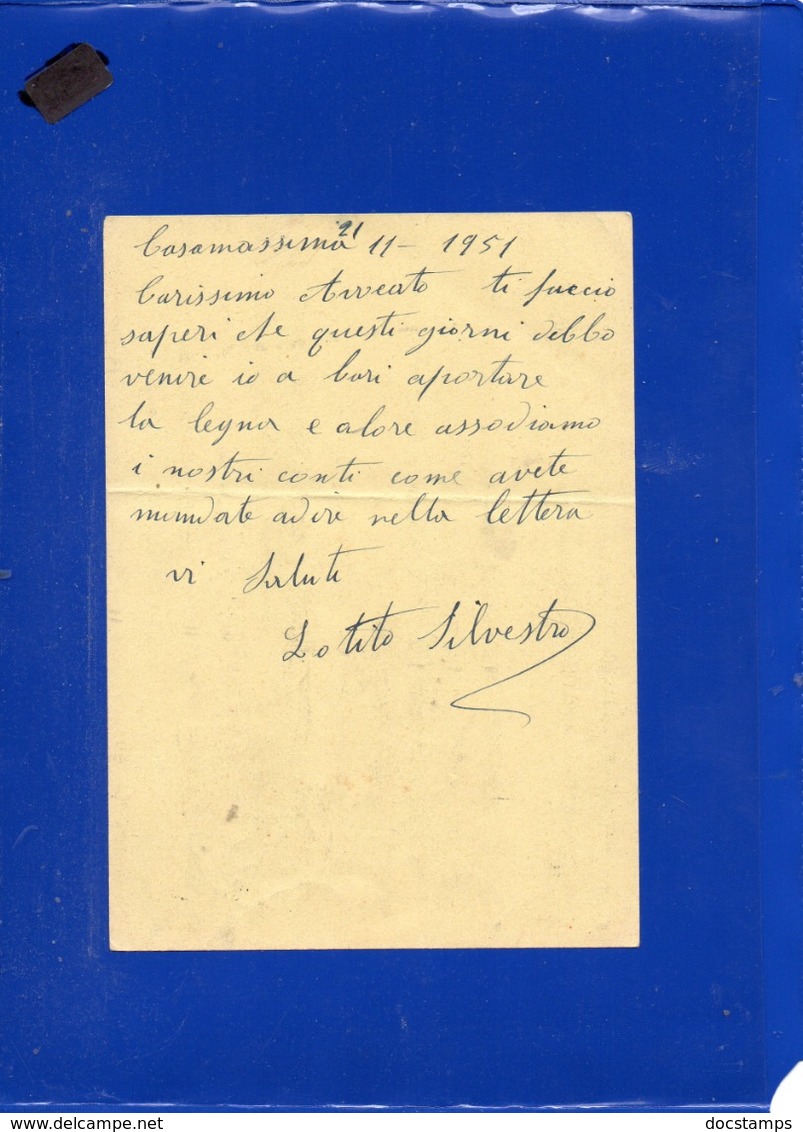 Casamassima 21 11 - 1951
Carissimo Avvcato ti faccio
saperi che questi giorni debbo
venire io a bari aportare
la legna e alore assodiamo
i nostri conti come avete
mandate adire nella lettera
vi Saluti
Lotito Silvestro
delcampe.net
docstamps